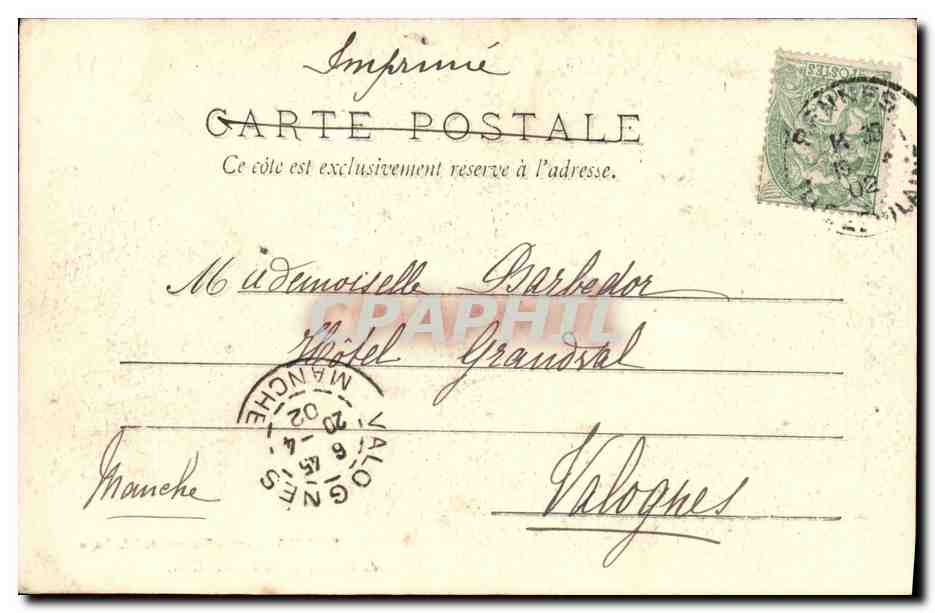 Imprimé
CARTE POSTALE
Ce côté est exclusivement réservé à l'adresse.
POSTES
RENNES
02
Mademoiselle Barbedor
CPAPHIL
Hôtel Grandval
MANCHE
VALOGNES
6 45
20 - 4
02
Manche
Valognes